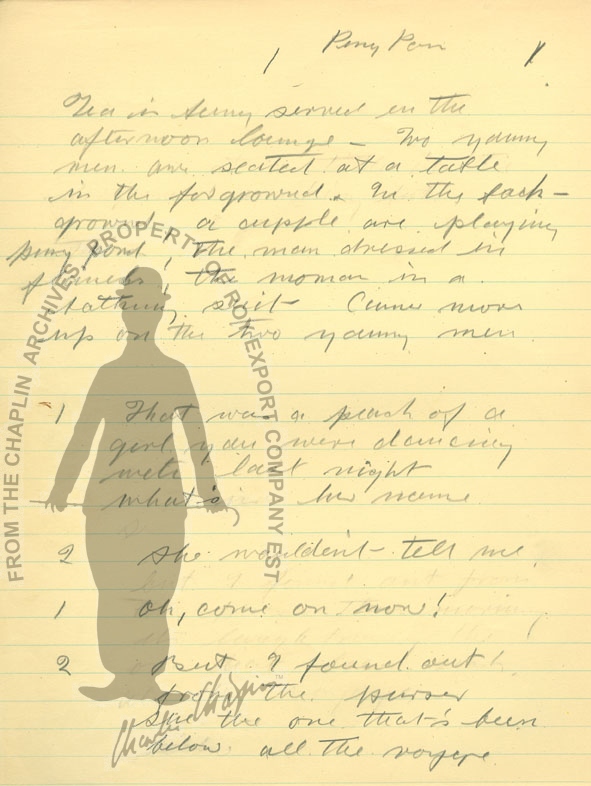 1 Ping Pon 1
Tea is being served in the
afternoon lounge - Two young
men are seated at a table
in the forground. In the back-
ground a cupple are playing
ping pond, The man dressed in
flanels, the woman in a
bathing suit - Camer move
up on the two young men.
1 That was a peach of a
girl you were dancing
with last night
what's her name
2 She wouldent tell me.
1 Oh, come on now!
2 But I found out
from the purser
She the one that's been
below all the voyege.
FROM THE CHAPLIN ARCHIVES. PROPERTY OF ROY EXPORT COMPANY EST
Charlie Chaplin™